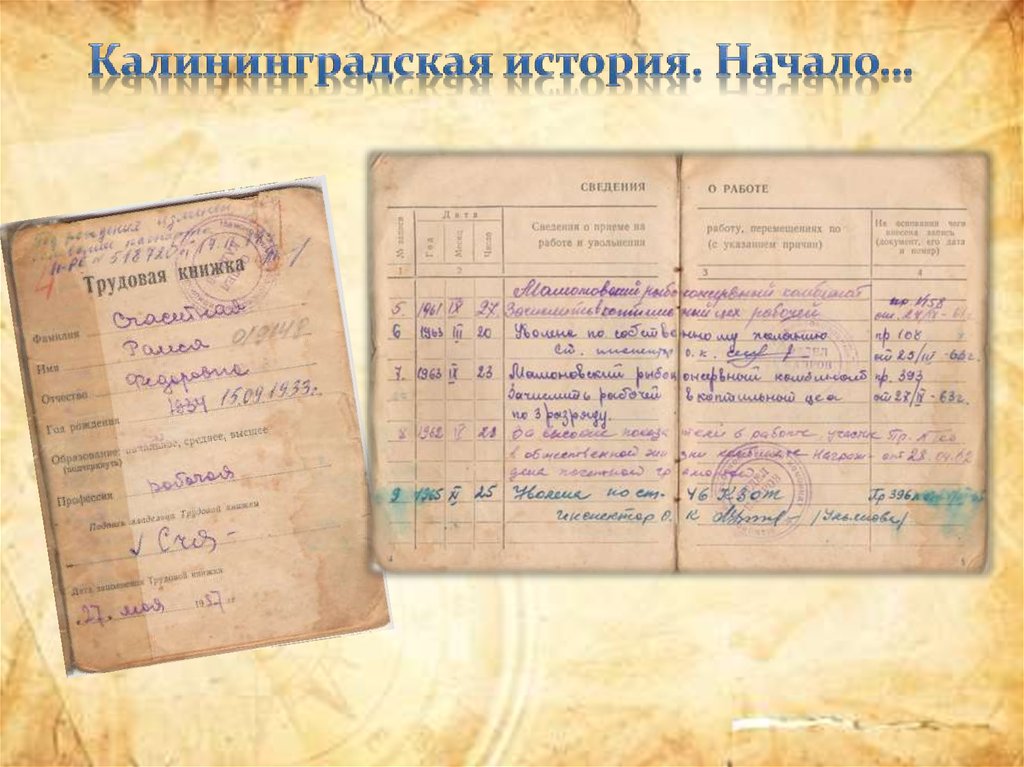 Калининградская история. Начало...
Год рождения изменен
№ 518720
4
Трудовая книжка
Фамилия Счастная
019148
Имя Раиса
Отчество Федоровна
Год рождения 1934 15.09.1933г.
Образование: начальное, среднее, высшее
(подчеркнуть)
Профессия рабочая
Подпись владельца Трудовой книжки
Дата заполнения Трудовой книжки
27 мая 1957 г.
СВЕДЕНИЯ О РАБОТЕ
№ записи
Дата
Год
Месяц
Число
Сведения о приеме на работу, перемещениях по
работе и увольнении (с указанием причин)
На основании чего
внесена запись
(документ, его дата
и номер)
1 2 3 4
Мамоновский рыбоконсервный комбинат
5 1961 IX 27 рабочей
6 1963 III 20 Уволена по собственному желанию пр 108
Ст. инспектор о.к.
7. 1963 IX 23 Мамоновский рыбоконсервный комбинат пр. 393
Зачислить рабочей в коптильный цех от 27/IX-63г.
по 3 разряду.
8 1962 IV 28 За высокие показатели в работе, участие
в общественной жизни комбината Награж- от 28.04.62
дена почетной грамотой
9 1965 25 Уволена по ст. 46 КЗОТ
инспектор о. к
4 5